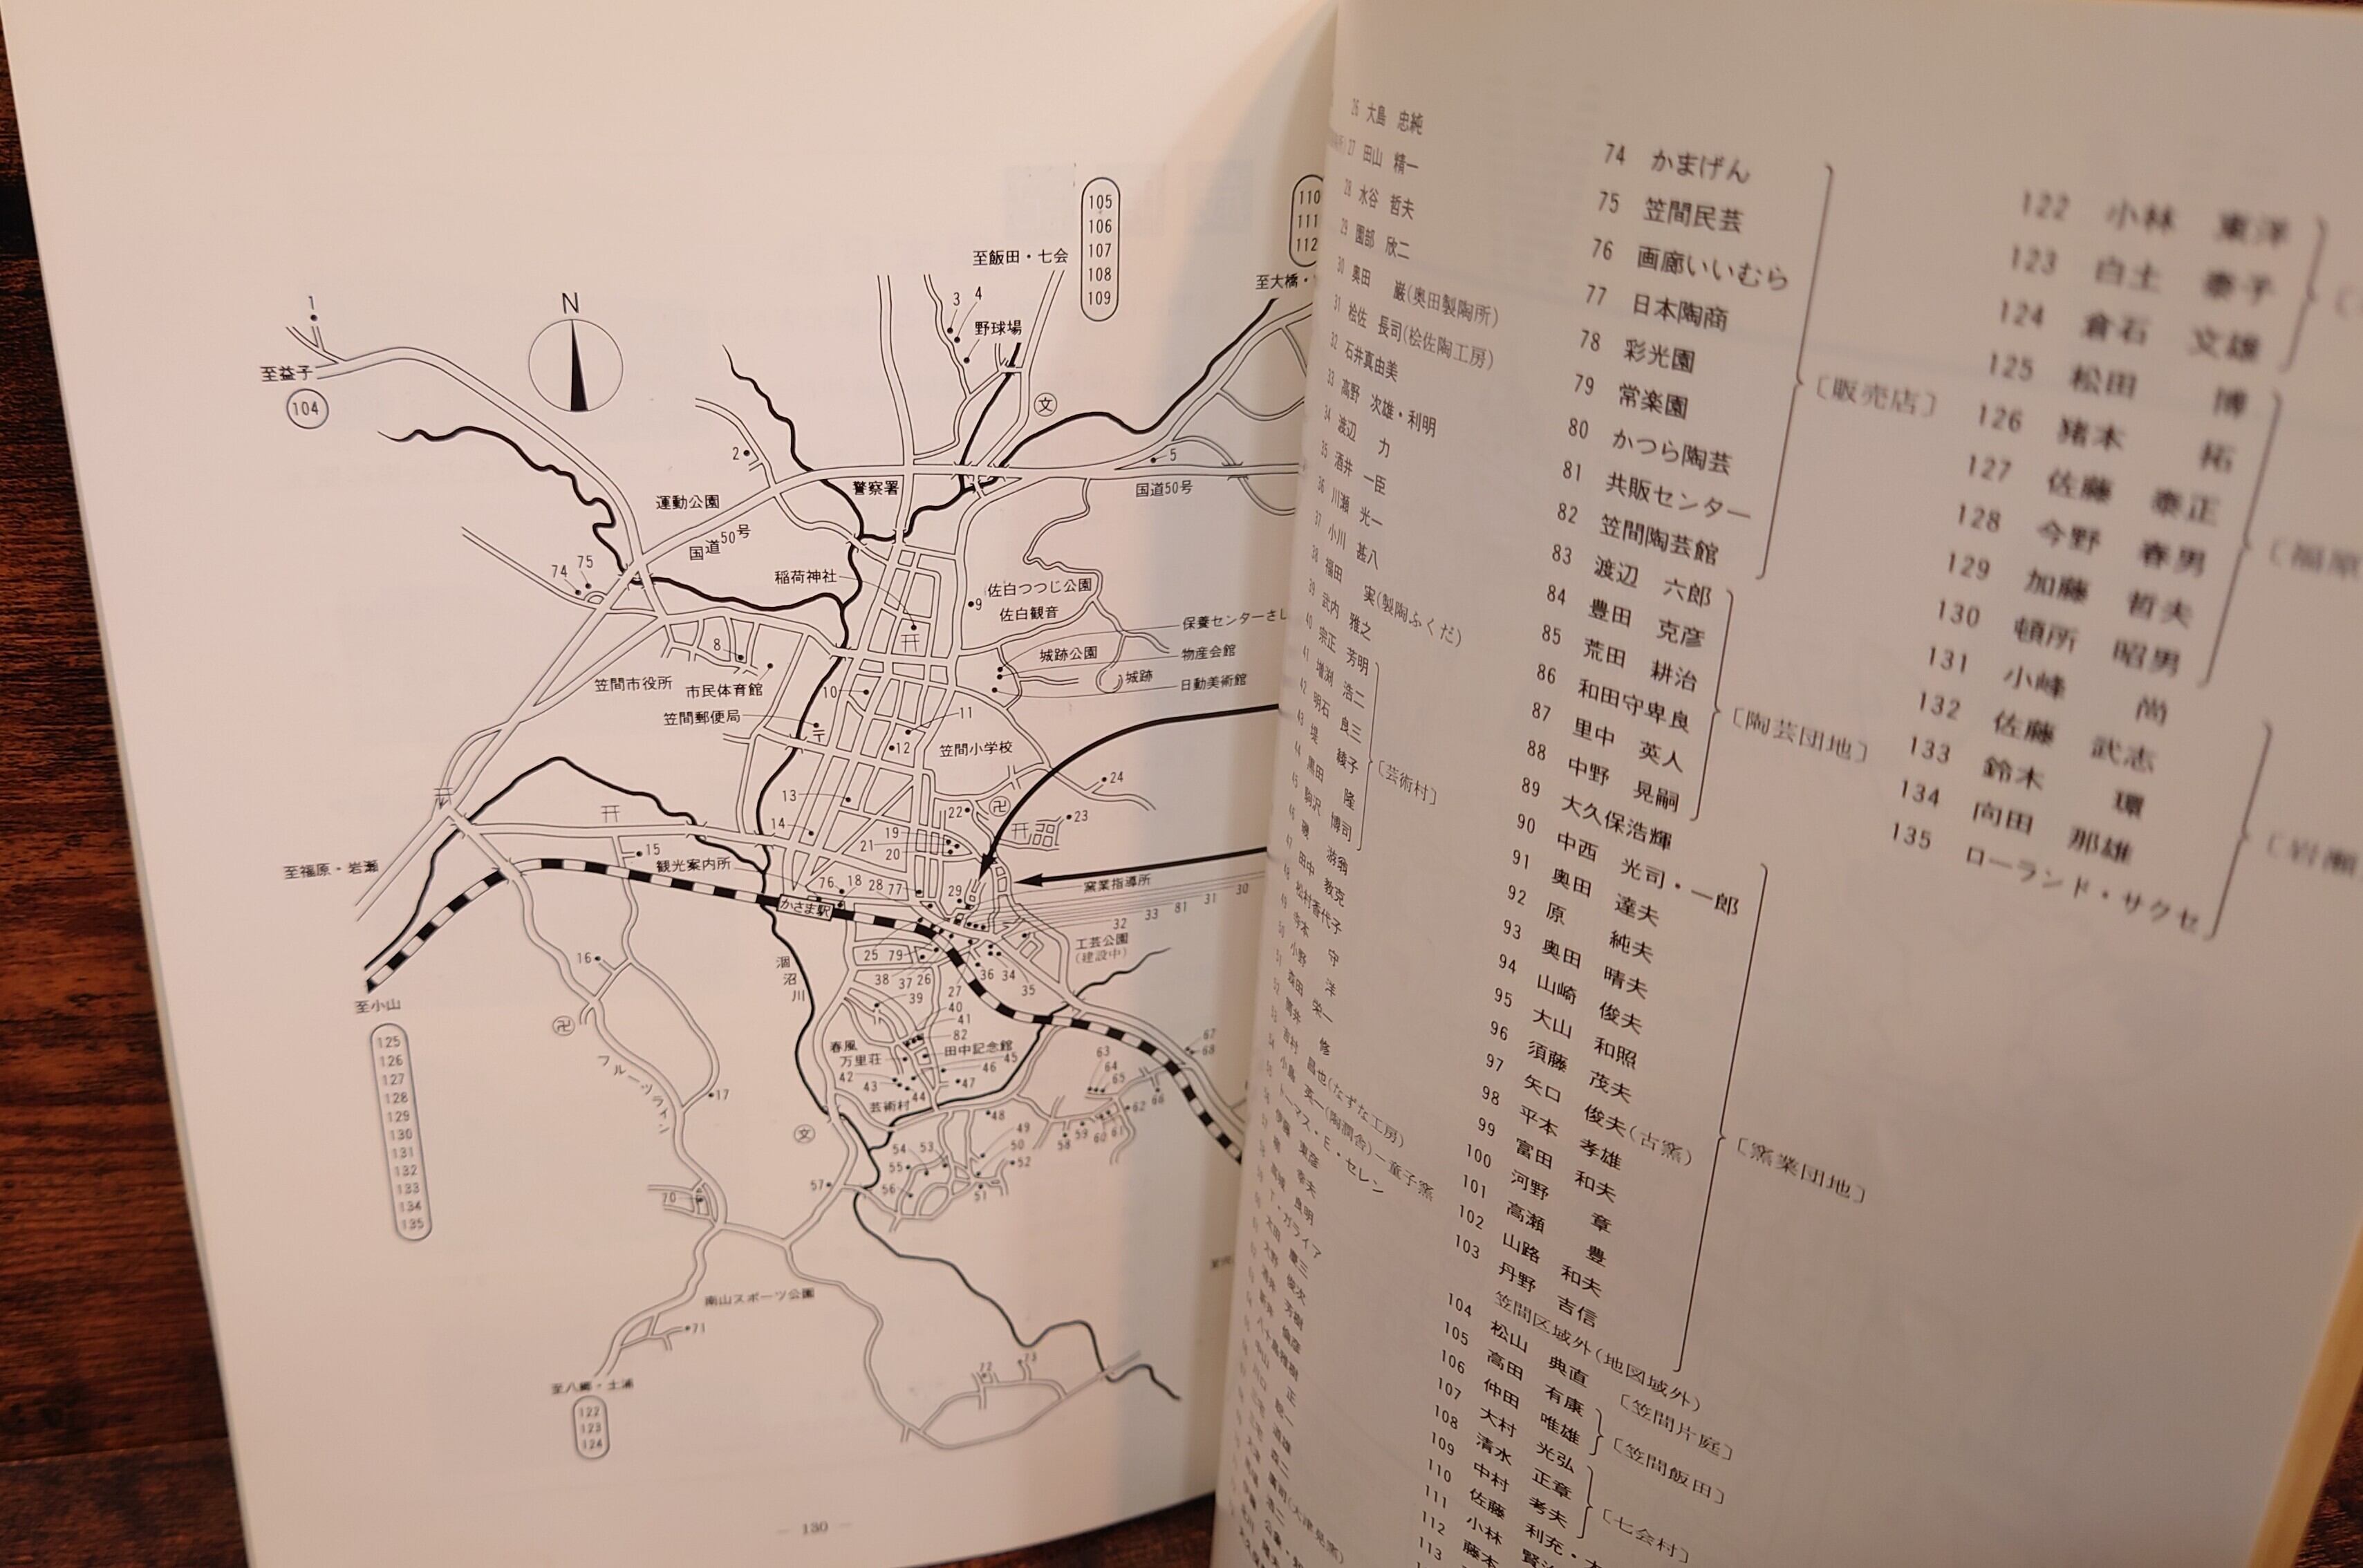 105
106
107
108
109
110
111
112
至飯田・七会
至大橋・
1
N
3
4
野球場
至益子
104
文
2
5
運動公園
警察署
国道50号
国道50号
74
75
稲荷神社
9
佐白つつじ公園
佐白観音
保養センターさし
8
城跡公園
物産会館
城跡
日動美術館
笠間市役所
市民体育館
10
笠間郵便局
11
12
笠間小学校
24
13
22
卍
23
14
19
21
20
15
至福原・岩瀬
観光案内所
76
18
28
77
29
窯業指導所
かさま駅
30
31
81
33
32
工芸公園
(建設中)
25
79
38
37
26
36
34
35
27
16
至小山
涸沼川
39
40
41
82
卍
春風
万里荘
田中記念館
45
46
42
43
44
47
芸術村
67
68
63
64
65
62
66
48
58
59
60
61
フルーツライン
17
文
49
50
54
53
52
55
56
51
57
70
125
126
127
128
129
130
131
132
133
134
135
南山スポーツ公園
71
72
73
至八郷・土浦
122
123
124
— 130 —
26 大島 忠純
27 田山 精一
28 水谷 哲夫
29 園部 欣二
30 奥田 巌(奥田製陶所)
31 桧佐 長司(桧佐陶工房)
32 石井真由美
33 高野 次雄・利明
34 渡辺 力
35 酒井 一臣
36 川瀬 光一
37 小川 甚八
38 福田 実(製陶ふくだ)
39 武内 雅之
40 宗正 芳明
41 増渕 浩二
42 明石 良三
43 堤 綾子
44 黒田 隆
45 駒沢 博司
〔芸術村〕
46 磯
47 田中 教克
48 松村香代子
49 寺本 守
50 小野 洋
51 森田 栄一
52 修
昌也(なずな工房)
小島 英一(陶潤舎)一童子窯
トーマス・E・セレン
伊藤 東彦
74 かまげん
75 笠間民芸
76 画廊いいむら
77 日本陶商
78 彩光園
79 常楽園
80 かつら陶芸
81 共販センター
82 笠間陶芸館
〔販売店〕
83 渡辺 六郎
84 豊田 克彦
85 荒田 耕治
86 和田守卑良
87 里中 英人
88 中野 晃嗣
〔陶芸団地〕
89 大久保浩輝
90 中西 光司・一郎
91 奥田 達夫
92 原 純夫
93 奥田 晴夫
94 山崎 俊夫
95 大山 和照
96 須藤 茂夫
97 矢口 俊夫(古窯)
98 平本 孝雄
99 富田 和夫
100 河野 章
101 高瀬 豊
102 山路 和夫
103 丹野 吉信
〔窯業団地〕
笠間区域外(地図域外)
104 松山 典直 〔笠間片庭〕
105 高田 有康
106 仲田 唯雄
〔笠間飯田〕
107 大村 光弘
108 清水 正章
109 中村 考夫
〔七会村〕
110 佐藤 利充・
111 小林
112 藤本
113
122 小林 東洋
123 白土 泰子
124 倉石 文雄
125 松田 博
126 猪本 拓
127 佐藤 泰正
128 今野 春男
129 加藤 哲夫
130 頓所 昭男
〔福原
131 小峰 尚
132 佐藤 武志
133 鈴木 環
134 向田 那雄
135 ローランド・サクセ
〔岩瀬